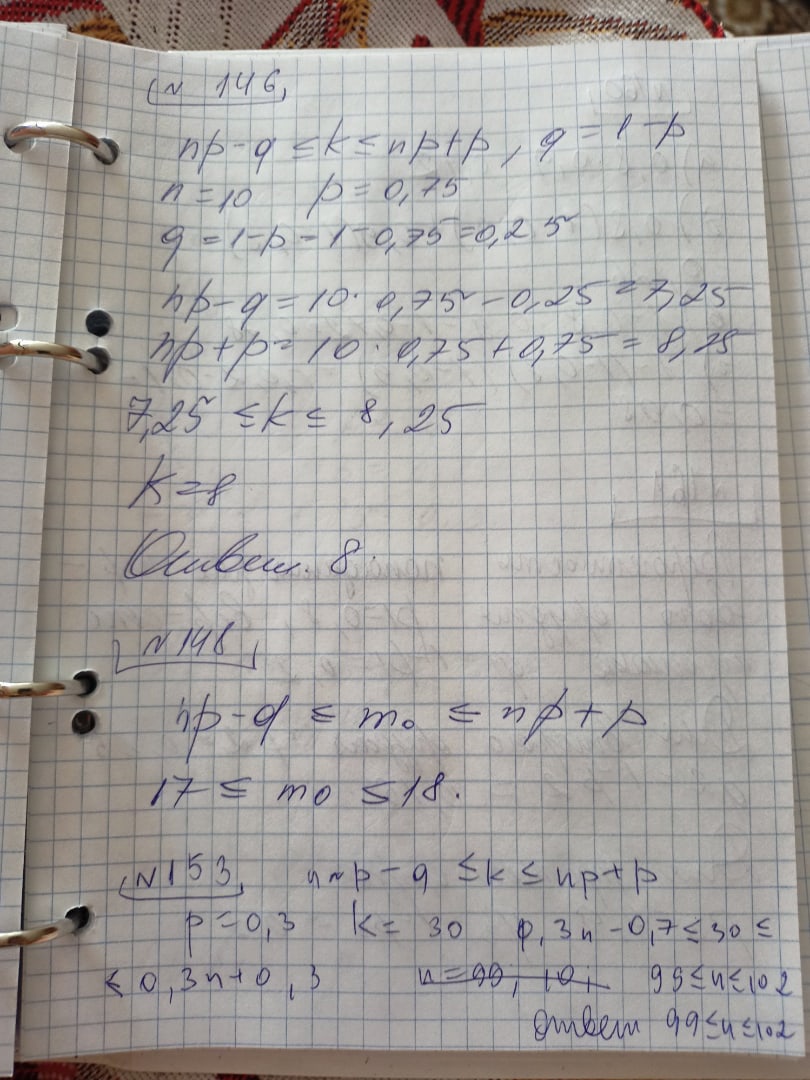 № 146
np-q ≤ k ≤ np+p, q = 1-p
n = 10 p = 0,75
q = 1-p = 1-0,75 = 0,25
np-q = 10 · 0,75 - 0,25 = 7,25
np+p = 10 · 0,75 + 0,75 = 8,25
7,25 ≤ k ≤ 8,25
k = 8
Ответ. 8.
№ 148
np-q ≤ m₀ ≤ np+p
17 ≤ m₀ ≤ 18.
№ 153 np-q ≤ k ≤ np+p
p = 0,3 k = 30 0,3n - 0,7 ≤ 30 ≤
≤ 0,3n + 0,3 99 ≤ n ≤ 102
Ответ 99 ≤ n ≤ 102